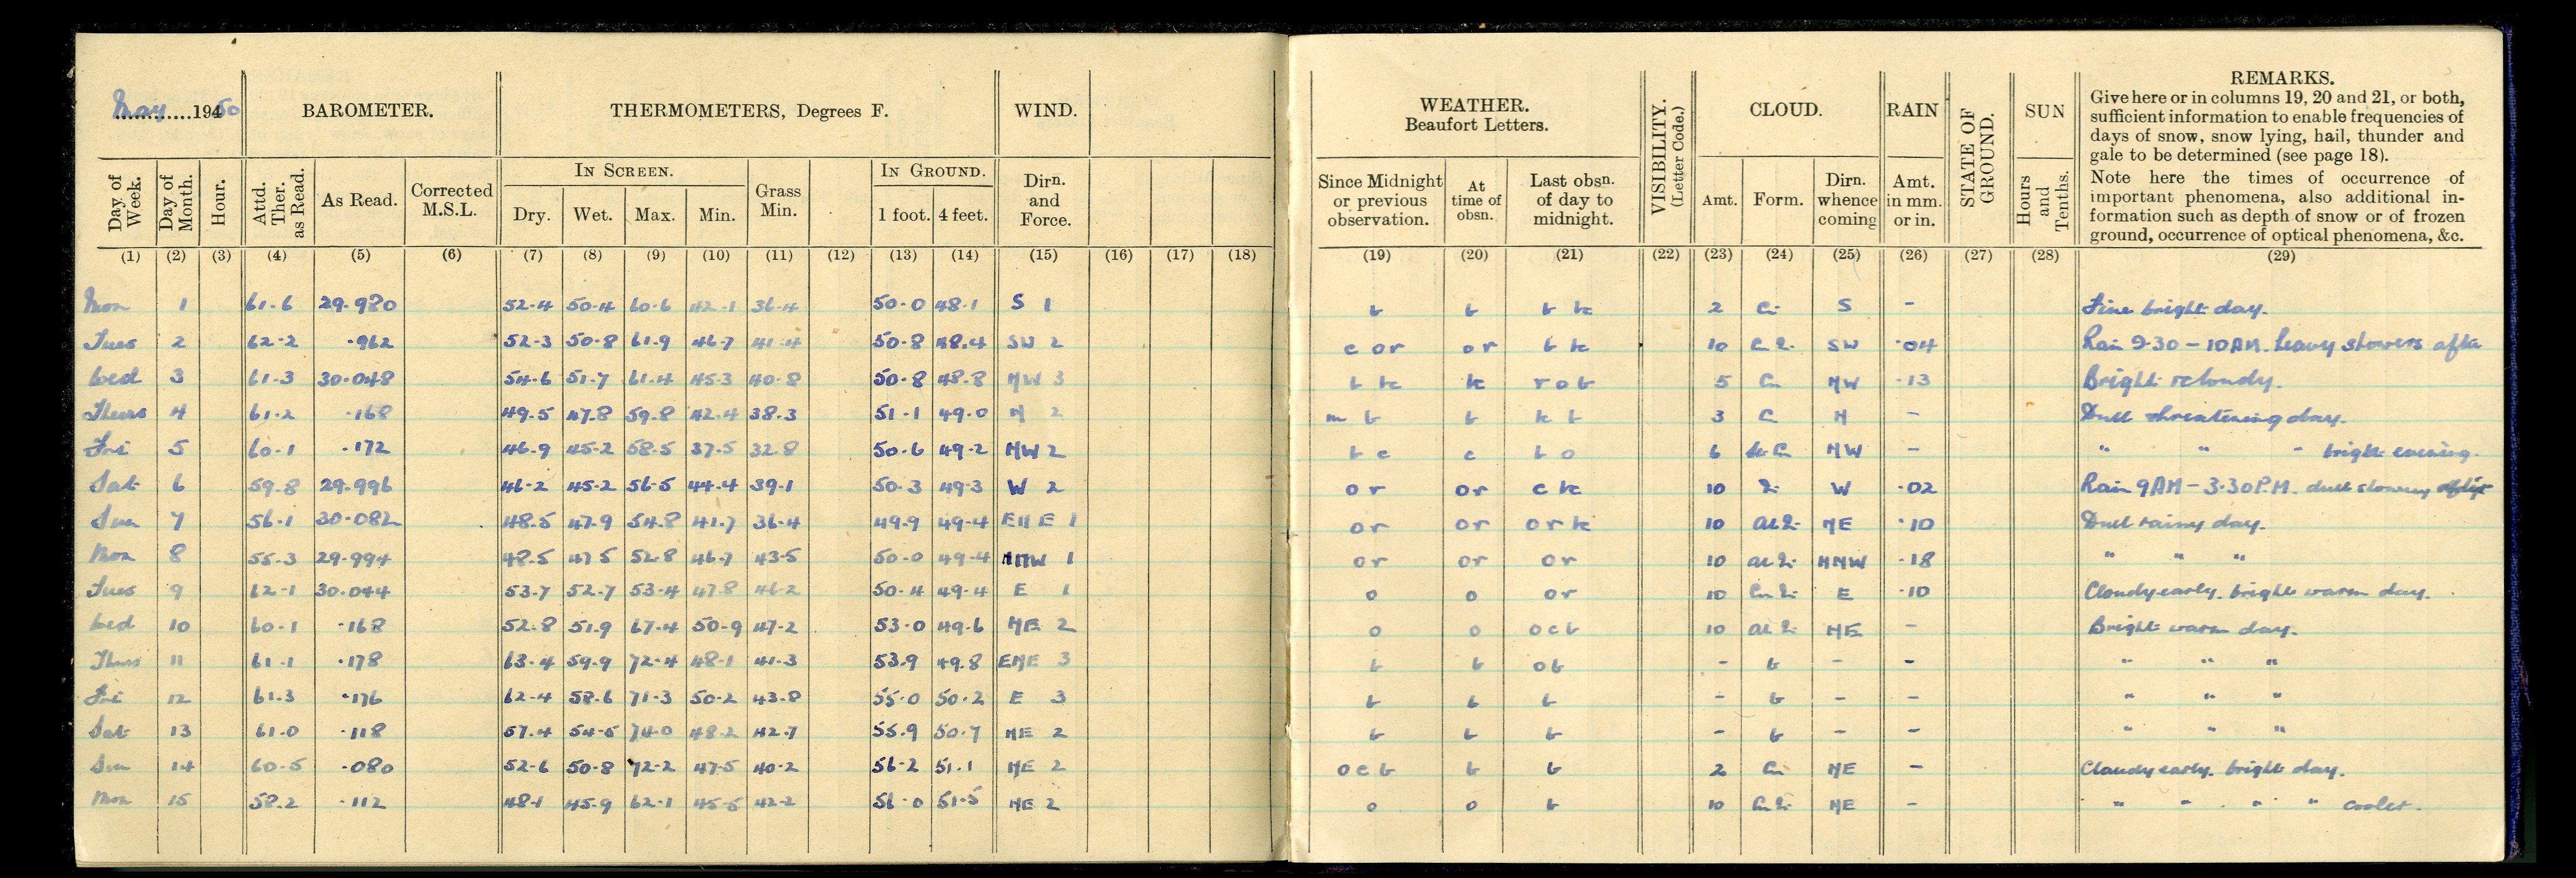 May 1950
BAROMETER. THERMOMETERS, Degrees F. WIND.
In Screen. In Ground.
Day of Week. Day of Month. Hour. Attd. Ther. as Read. As Read. Corrected M.S.L. Dry. Wet. Max. Min. Grass Min. 1 foot. 4 feet. Dirn. and Force.
(1) (2) (3) (4) (5) (6) (7) (8) (9) (10) (11) (12) (13) (14) (15) (16) (17) (18)
Mon 1 61.6 29.980 52.4 50.4 60.6 42.1 36.4 50.0 48.1 S 1
Tues 2 62.2 .962 52.3 50.8 61.9 46.7 41.4 50.8 48.4 SW 2
Wed 3 61.3 30.048 54.6 51.7 61.4 45.3 40.8 50.8 48.8 NW 3
Thurs 4 61.2 .168 49.5 47.8 59.8 42.4 38.3 51.1 49.0 N 2
Fri 5 60.1 .172 46.9 45.2 58.5 37.5 32.8 50.6 49.2 NW 2
Sat 6 59.8 29.996 46.2 45.2 56.5 44.4 39.1 50.3 49.3 W 2
Sun 7 56.1 30.082 48.5 47.9 54.8 41.7 36.4 49.9 49.4 ENE 1
Mon 8 55.3 29.994 48.5 47.5 52.8 46.7 43.5 50.0 49.4 NNW 1
Tues 9 62.1 30.044 53.7 52.7 53.4 47.8 46.2 50.4 49.4 E 1
Wed 10 60.1 .168 52.8 51.9 67.4 50.9 47.2 53.0 49.6 NE 2
Thurs 11 61.1 .178 63.4 59.9 72.4 48.1 41.3 53.9 49.8 ENE 3
Fri 12 61.3 .176 62.4 58.6 71.3 50.2 43.8 55.0 50.2 E 3
Sat 13 61.0 .118 57.4 54.5 74.0 48.2 42.7 55.9 50.7 NE 2
Sun 14 60.5 .080 52.6 50.8 72.2 47.5 40.2 56.2 51.1 NE 2
Mon 15 58.2 .112 48.1 45.9 62.1 45.5 42.2 56.0 51.5 NE 2
WEATHER. Beaufort Letters. VISIBILITY. (Letter Code.) CLOUD. RAIN STATE OF GROUND. SUN REMARKS.
Give here or in columns 19, 20 and 21, or both,
sufficient information to enable frequencies of
days of snow, snow lying, hail, thunder and
gale to be determined (see page 18).
Note here the times of occurrence of
important phenomena, also additional in-
formation such as depth of snow or of frozen
ground, occurrence of optical phenomena, &c.
Since Midnight or previous observation. At time of obsn. Last obsn. of day to midnight. Amt. Form. Dirn. whence coming Amt. in mm. or in. Hours and Tenths.
(19) (20) (21) (22) (23) (24) (25) (26) (27) (28) (29)
b b b k 2 Ci S - Fine bright day.
c or or b k 10 SW .04 Rain 9.30 - 10 AM. heavy showers after
b k k r o b 5 Cu NW .13 Bright & cloudy.
m b b k b 3 C N - Dull threatening day.
b c c b o 6 Cu NW - " " " bright evening.
or or c k 10 W .02 Rain 9AM - 3.30P.M. dull showery after
or or or k 10 NE .10 Dull rainy day.
or or or 10 NNW .18 " " "
o o or 10 E .10 Cloudy early. bright warm day.
o o o c b 10 NE - Bright warm day.
b b o b - b - - " " "
b b b - b - - " " "
b b b - b - - " " "
o c b b b 2 Cu NE - Cloudy early. bright day.
o o b 10 NE - " " " " cooler.